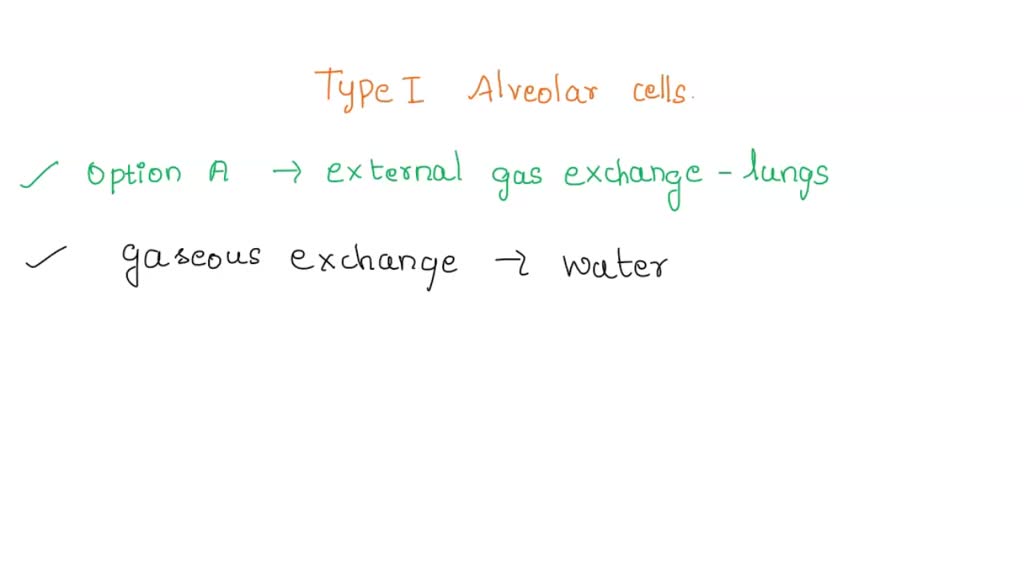 Type I Alveolar cells.
✓ Option A → external gas exchange - lungs
✓ gaseous exchange → water